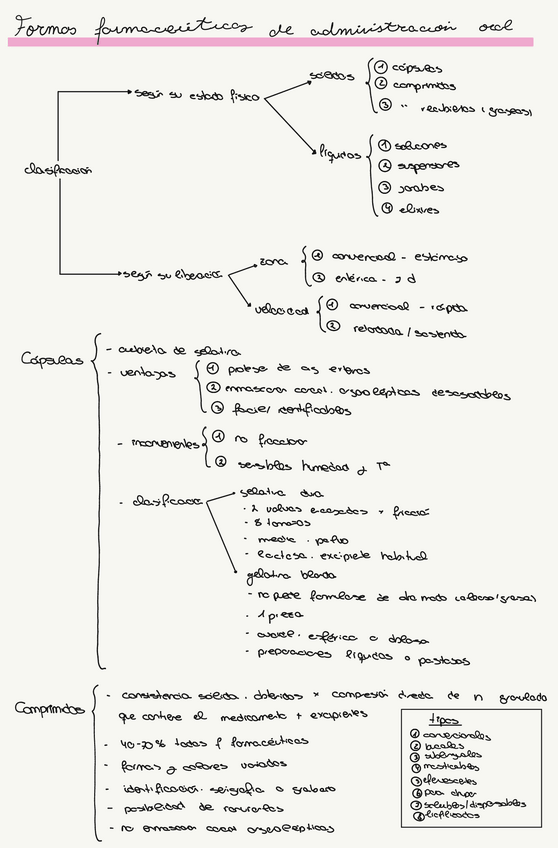 Formas farmaceúticas de administración oral
clasificación
según su estado físico
sólidos
① cápsulas
② comprimidos
③ " recubiertos (grageas)
líquidos
① soluciones
② suspensiones
③ jarabes
④ elixires
según su liberación
zona
① convencional - estómago
② entérica - 2 d
velocidad
① convencional - rápida
② retardada / sostenida
Cápsulas
- cubierta de gelatina
- ventajas
① protege de ag externos
② enmascaran caract. organolépticas desagradables
③ fácil identificables
- inconvenientes
① no fraccionar
② sensibles humedad y Tª
- clasificación
gelatina dura
· 2 valvas encajadas x fricción
- 8 tamaños
- medic. polvo
- lactosa. excipiente habitual
gelatina blanda
- no puede formularse de otro modo (oleoso/grasas)
- 1 pieza
- ovoide. esférica o oblonga
- preparaciones líquidas o pastosas
Comprimidos
- consistencia sólida. obtenidos x compresión directa de n granulado
que contiene el medicamento + excipientes
- 40-70% todas f farmacéuticas
- formas y colores variados
- identificación. serigrafía o grabado
- posibilidad de ranurarlos
- no enmascaran caract organolépticas
tipos
① convencionales
② bucales
③ sublinguales
④ masticables
⑤ efervescentes
⑥ para chupar
⑦ solubles/dispersables
⑧ liofilizados